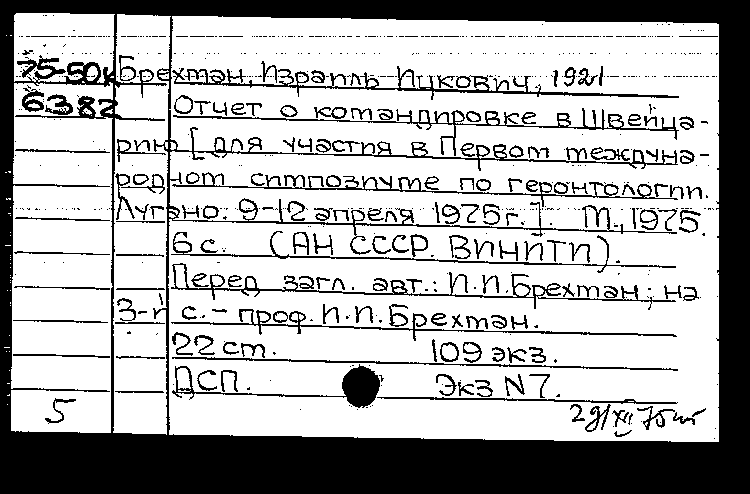 75-50к Брехман, Израиль Ицкович, 1921
6382 Отчет о командировке в Швейца-
рию [для участия в Первом междуна-
родном симпозиуме по геронтологии.
Лугано. 9-12 апреля 1975г.]. М., 1975.
6 с. (АН СССР. ВИНИТИ).
Перед загл. авт.: И.И.Брехман; на
3-й с. - проф. И.И.Брехман.
22 ст. 109 экз.
ДСП. Экз N 7.
5 29/XII 75